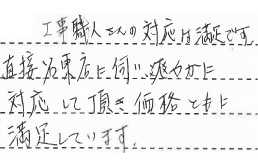 工事職人さんの対応は満足です。
直接名東店に伺い速やかに
対応して頂き価格ともに
満足しています。